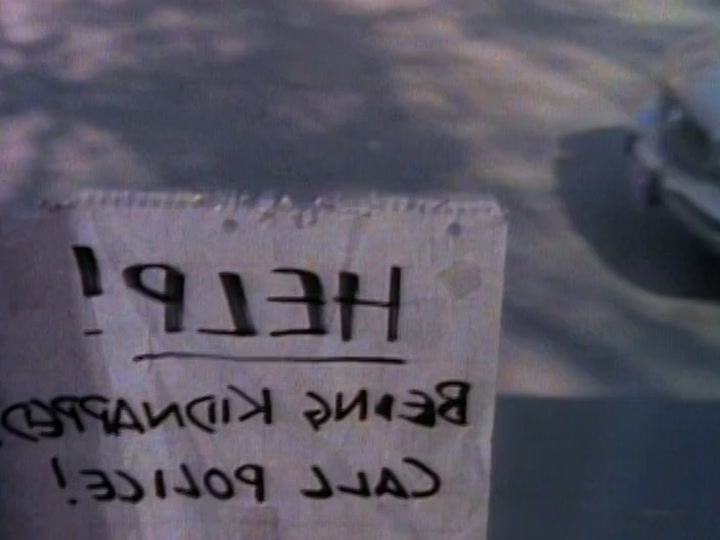 HELP!
BEING KIDNAPPED,
CALL POLICE!